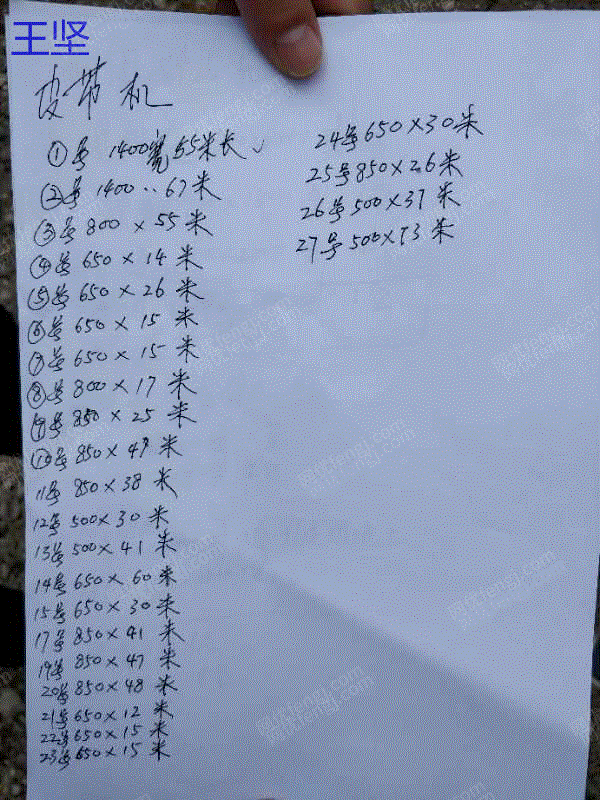 王坚
皮带机
①号 1400宽 55米长
②号 1400‥67米
③号 800×55米
④号 650×14米
⑤号 650×26米
⑥号 650×15米
⑦号 650×15米
⑧号 800×17米
⑨号 850×25米
⑩号 850×49米
11号 850×38米
12号 500×30米
13号 500×41米
14号 650×60米
15号 650×30米
17号 850×41米
19号 850×47米
20号 850×48米
21号 650×12米
22号 650×15米
23号 650×15米
24号 650×30米
25号 850×26米
26号 500×37米
27号 500×73米